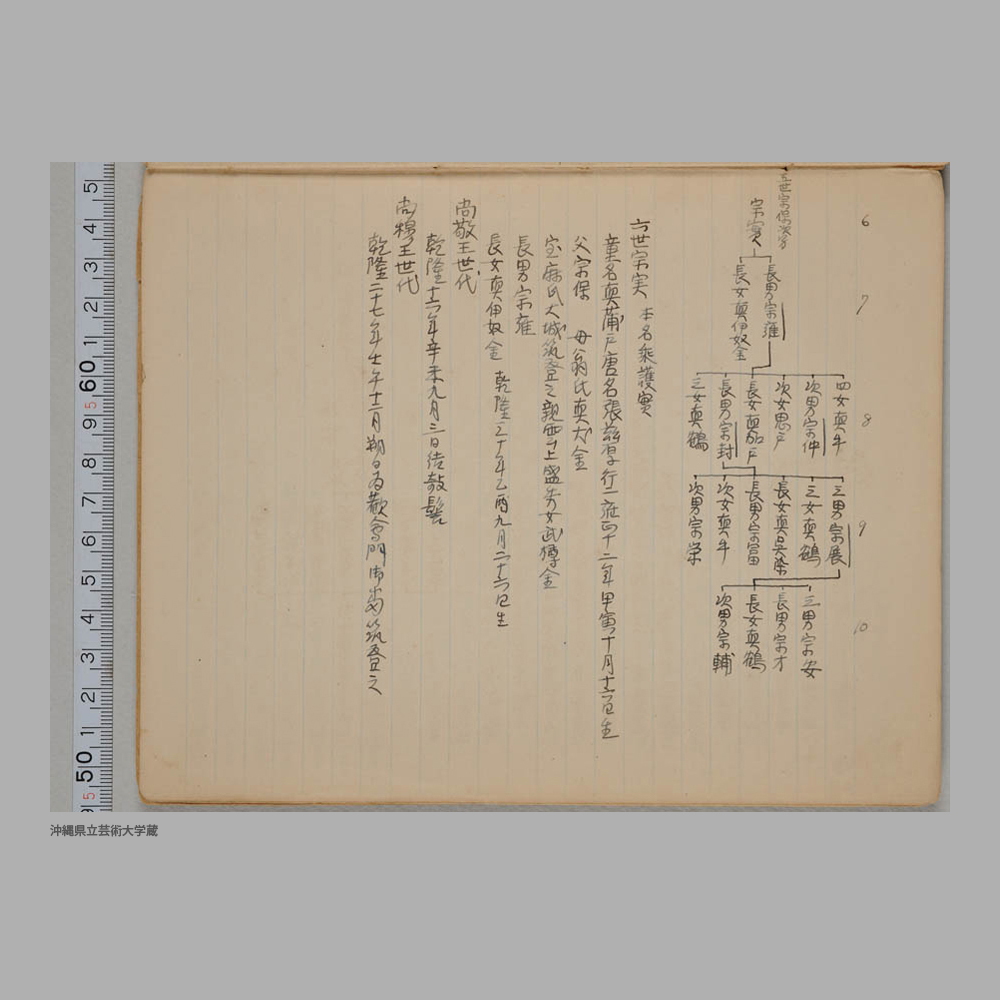 五世宗保次男
宗實
長男宗雍
長女真伊奴金
四女真牛
次男宗仲
次女思戸
長女真加戸
長男宗封
三女真鶴
三男宗展
三女真鶴
長女真呉勢
長男宗富
次女真牛
次男宗栄
三男宗安
長男宗才
長女真鶴
次男宗輔
6
7
8
9
10
六世宗実 本名乗護實
童名真蒲戸唐名張 行一雍正十二年甲寅十月十六日生
父宗保 母翁氏真犬金
室麻氏大城筑登之親雲上盛秀女武樽金
長男宗雍
長女真伊奴金 乾隆三十年乙酉九月二十六日生
尚敬王世代
乾隆十六年辛未九月三日結敧髻
尚穆王世代
乾隆二十七年壬午十二月朔日為歓會門 筑登之
5
4
3
2
1
60
5
9
8
7
6
5
4
3
2
1
50
5
沖縄県立芸術大学蔵